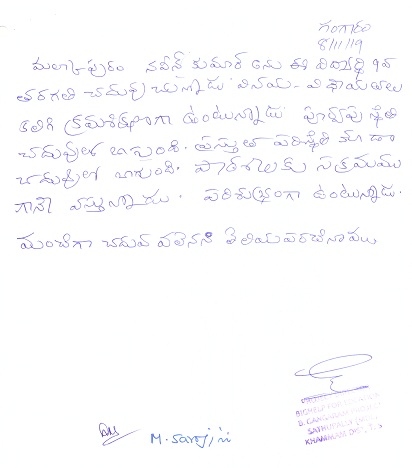 గంగారం
8/11/19
మల్కాపురం నవీన్ కుమార్ అను ఈ విద్యార్థి 9వ
తరగతి చదువు చున్నాడు వినయ - విధేయతలు
కలిగి క్రమశిక్షణగా ఉంటున్నాడు పూర్వపు స్థితి
చదువులో బాగుంది. ప్రస్తుత పరిస్థితి కూడా
చదువులో బాగుంది. పాఠశాలకు సక్రమము
గానే వస్తున్నాడు. పరిశుభ్రంగా ఉంటున్నాడు.
మంచిగా చదువ వలెనని తెలియపరచినాము
M. Sarojini
B. GANGARAM
SATHUPALLI
KHAMMAM